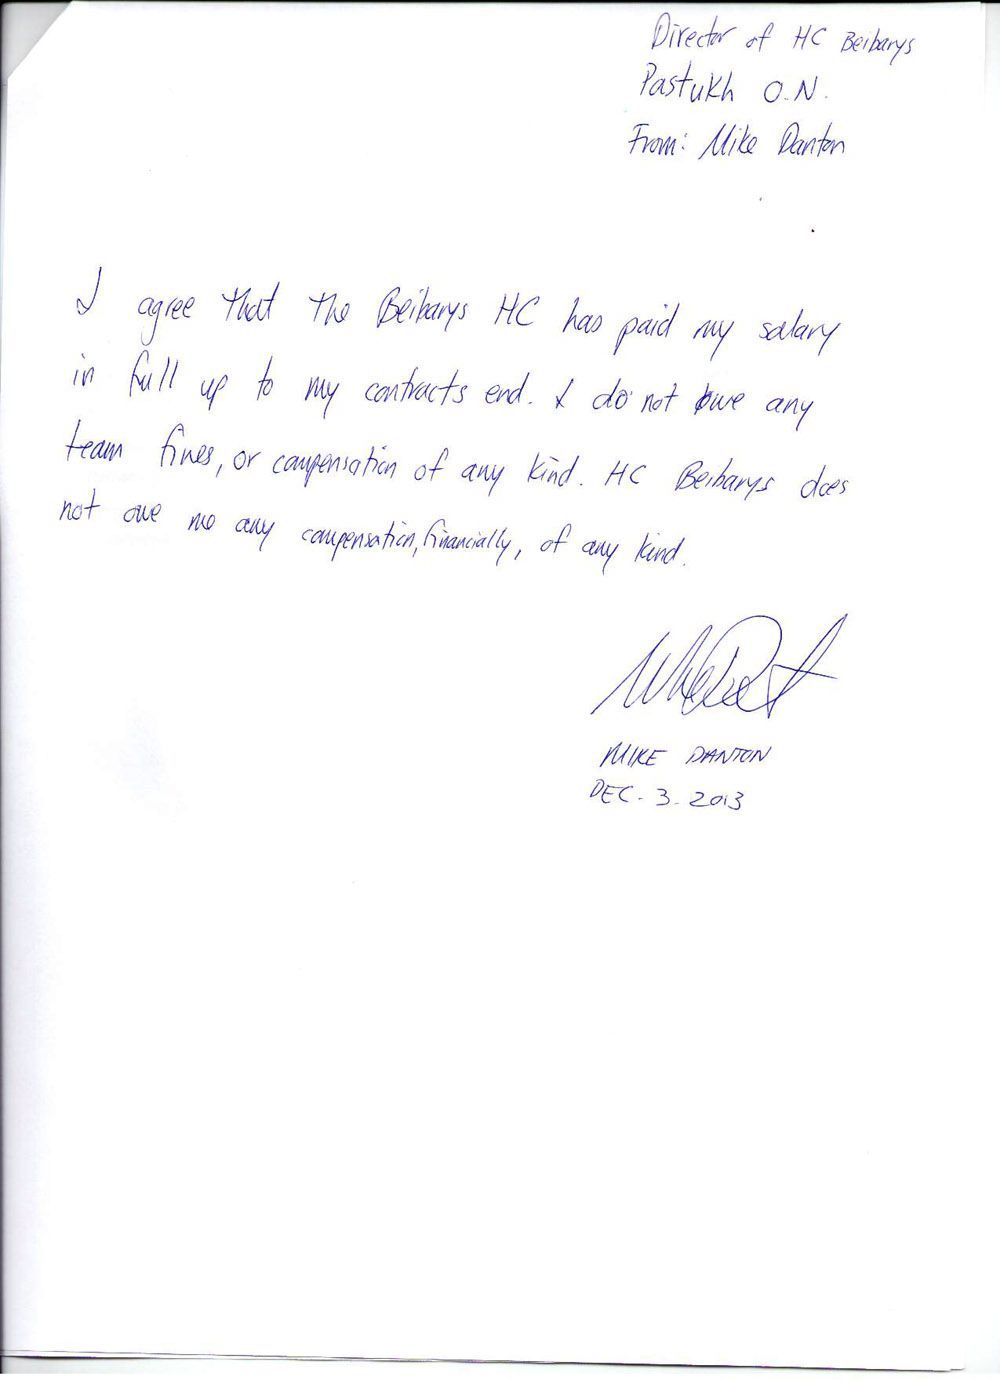 Director of HC Beibarys
Pastukh O.N.
From: Mike Danton
I agree that the Beibarys HC has paid my salary
in full up to my contracts end. I do not owe any
team fines, or compensation of any kind. HC Beibarys does
not owe me any compensation, financially, of any kind.
MIKE DANTON
DEC. 3. 2013